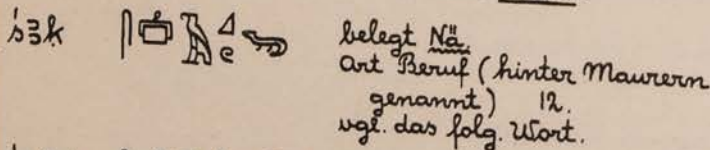 śꜣḳ belegt Nä.
Art Beruf (hinter Maurern
genannt) 12.
vgl. das folg. Wort.